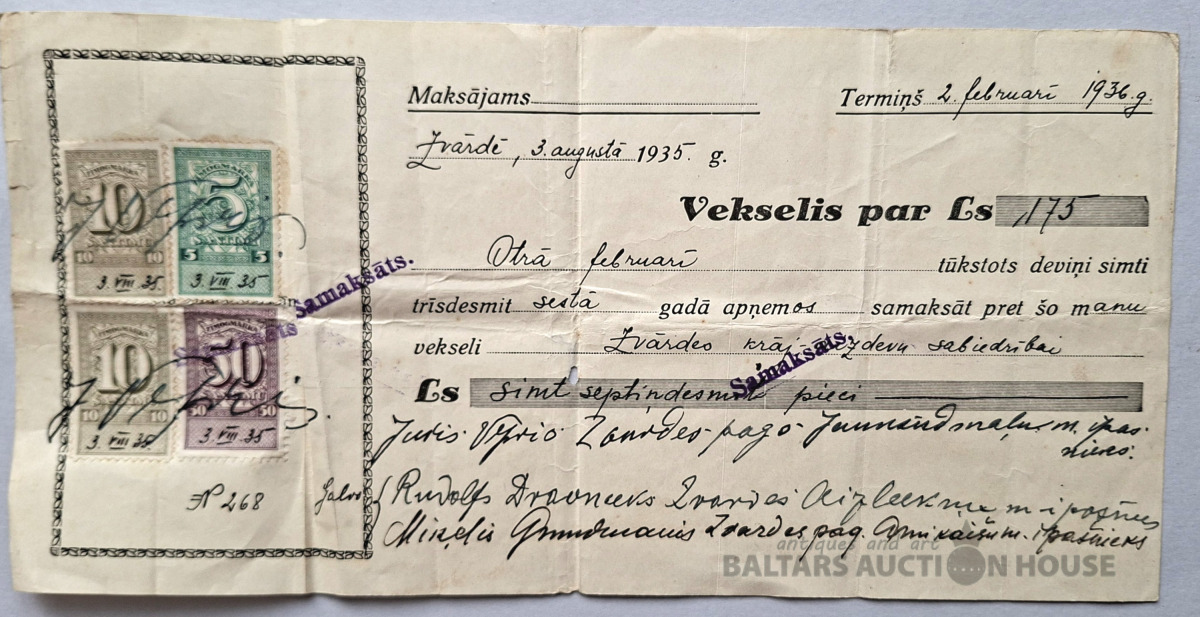 Maksājams
Termiņš 2. februarī 1936. g.
Zvārdē, 3. augustā 1935. g.
Vekselis par Ls 175
Otrā februarī tūkstots deviņi simti
trīsdesmit sestā gadā apņemos samaksāt pret šo manu
vekseli Zvārdes krāj izdevu sabiedrībai
Ls simt septiņdesmit pieci
Juris Zvardes pag. m. īpaš-
nieks.
Rudolfs Dravnieks Zvardes m. īpašnieks
Miķelis Grundmanis Zvardes pag. m. īpašnieks
Galvo
№ 268
ZIMOGMARKA
10
SANTIMU
10 10
3. VIII. 35
ZIMOGMARKA
5
SANTIMI
5 5
3. VIII. 35
ZIMOGMARKA
10
SANTIMU
10 10
3. VIII. 35
ZIMOGMARKA
50
SANTIMU
50 50
3. VIII. 35
Samaksāts.
Samaksāts.
antiques and art
BALTARS AUCTION HOUSE